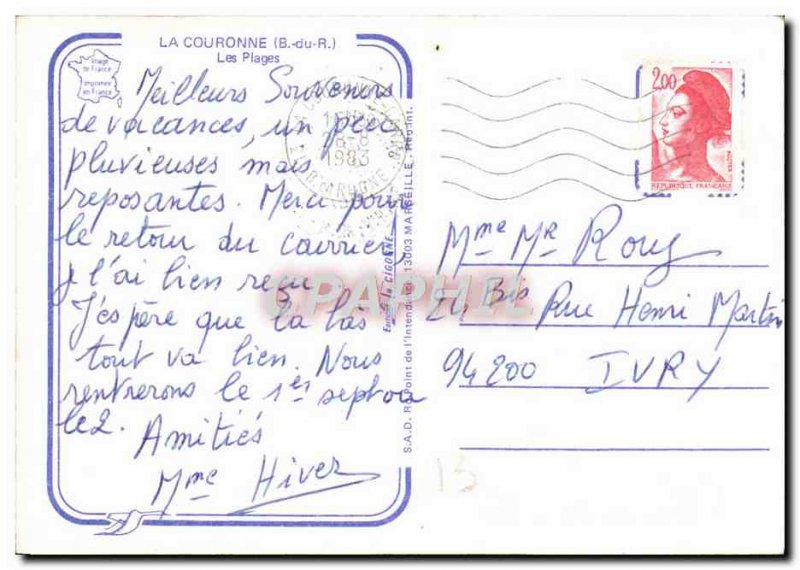 LA COURONNE (B.-du-R.)
Les Plages
Image
de France
Imprimée
en France
Meilleurs Souvenirs
de vacances, un peu
pluvieuses mais
reposantes. Merci pour
le retour du courrier,
je l'ai bien reçu
J'espère que la bàs
tout va bien. Nous
rentrerons le 1er sept ou
le 2. Amitiés
Mme Hiver
1983
S.A.D. Rd Point de l'Intendance, 13003 MARSEILLE
la CIGOGNE
2.00
REPUBLIQUE FRANÇAISE
Mme Mr Rouy
24 Bis Rue Henri Martin
94200 IVRY
CPARAMA
13